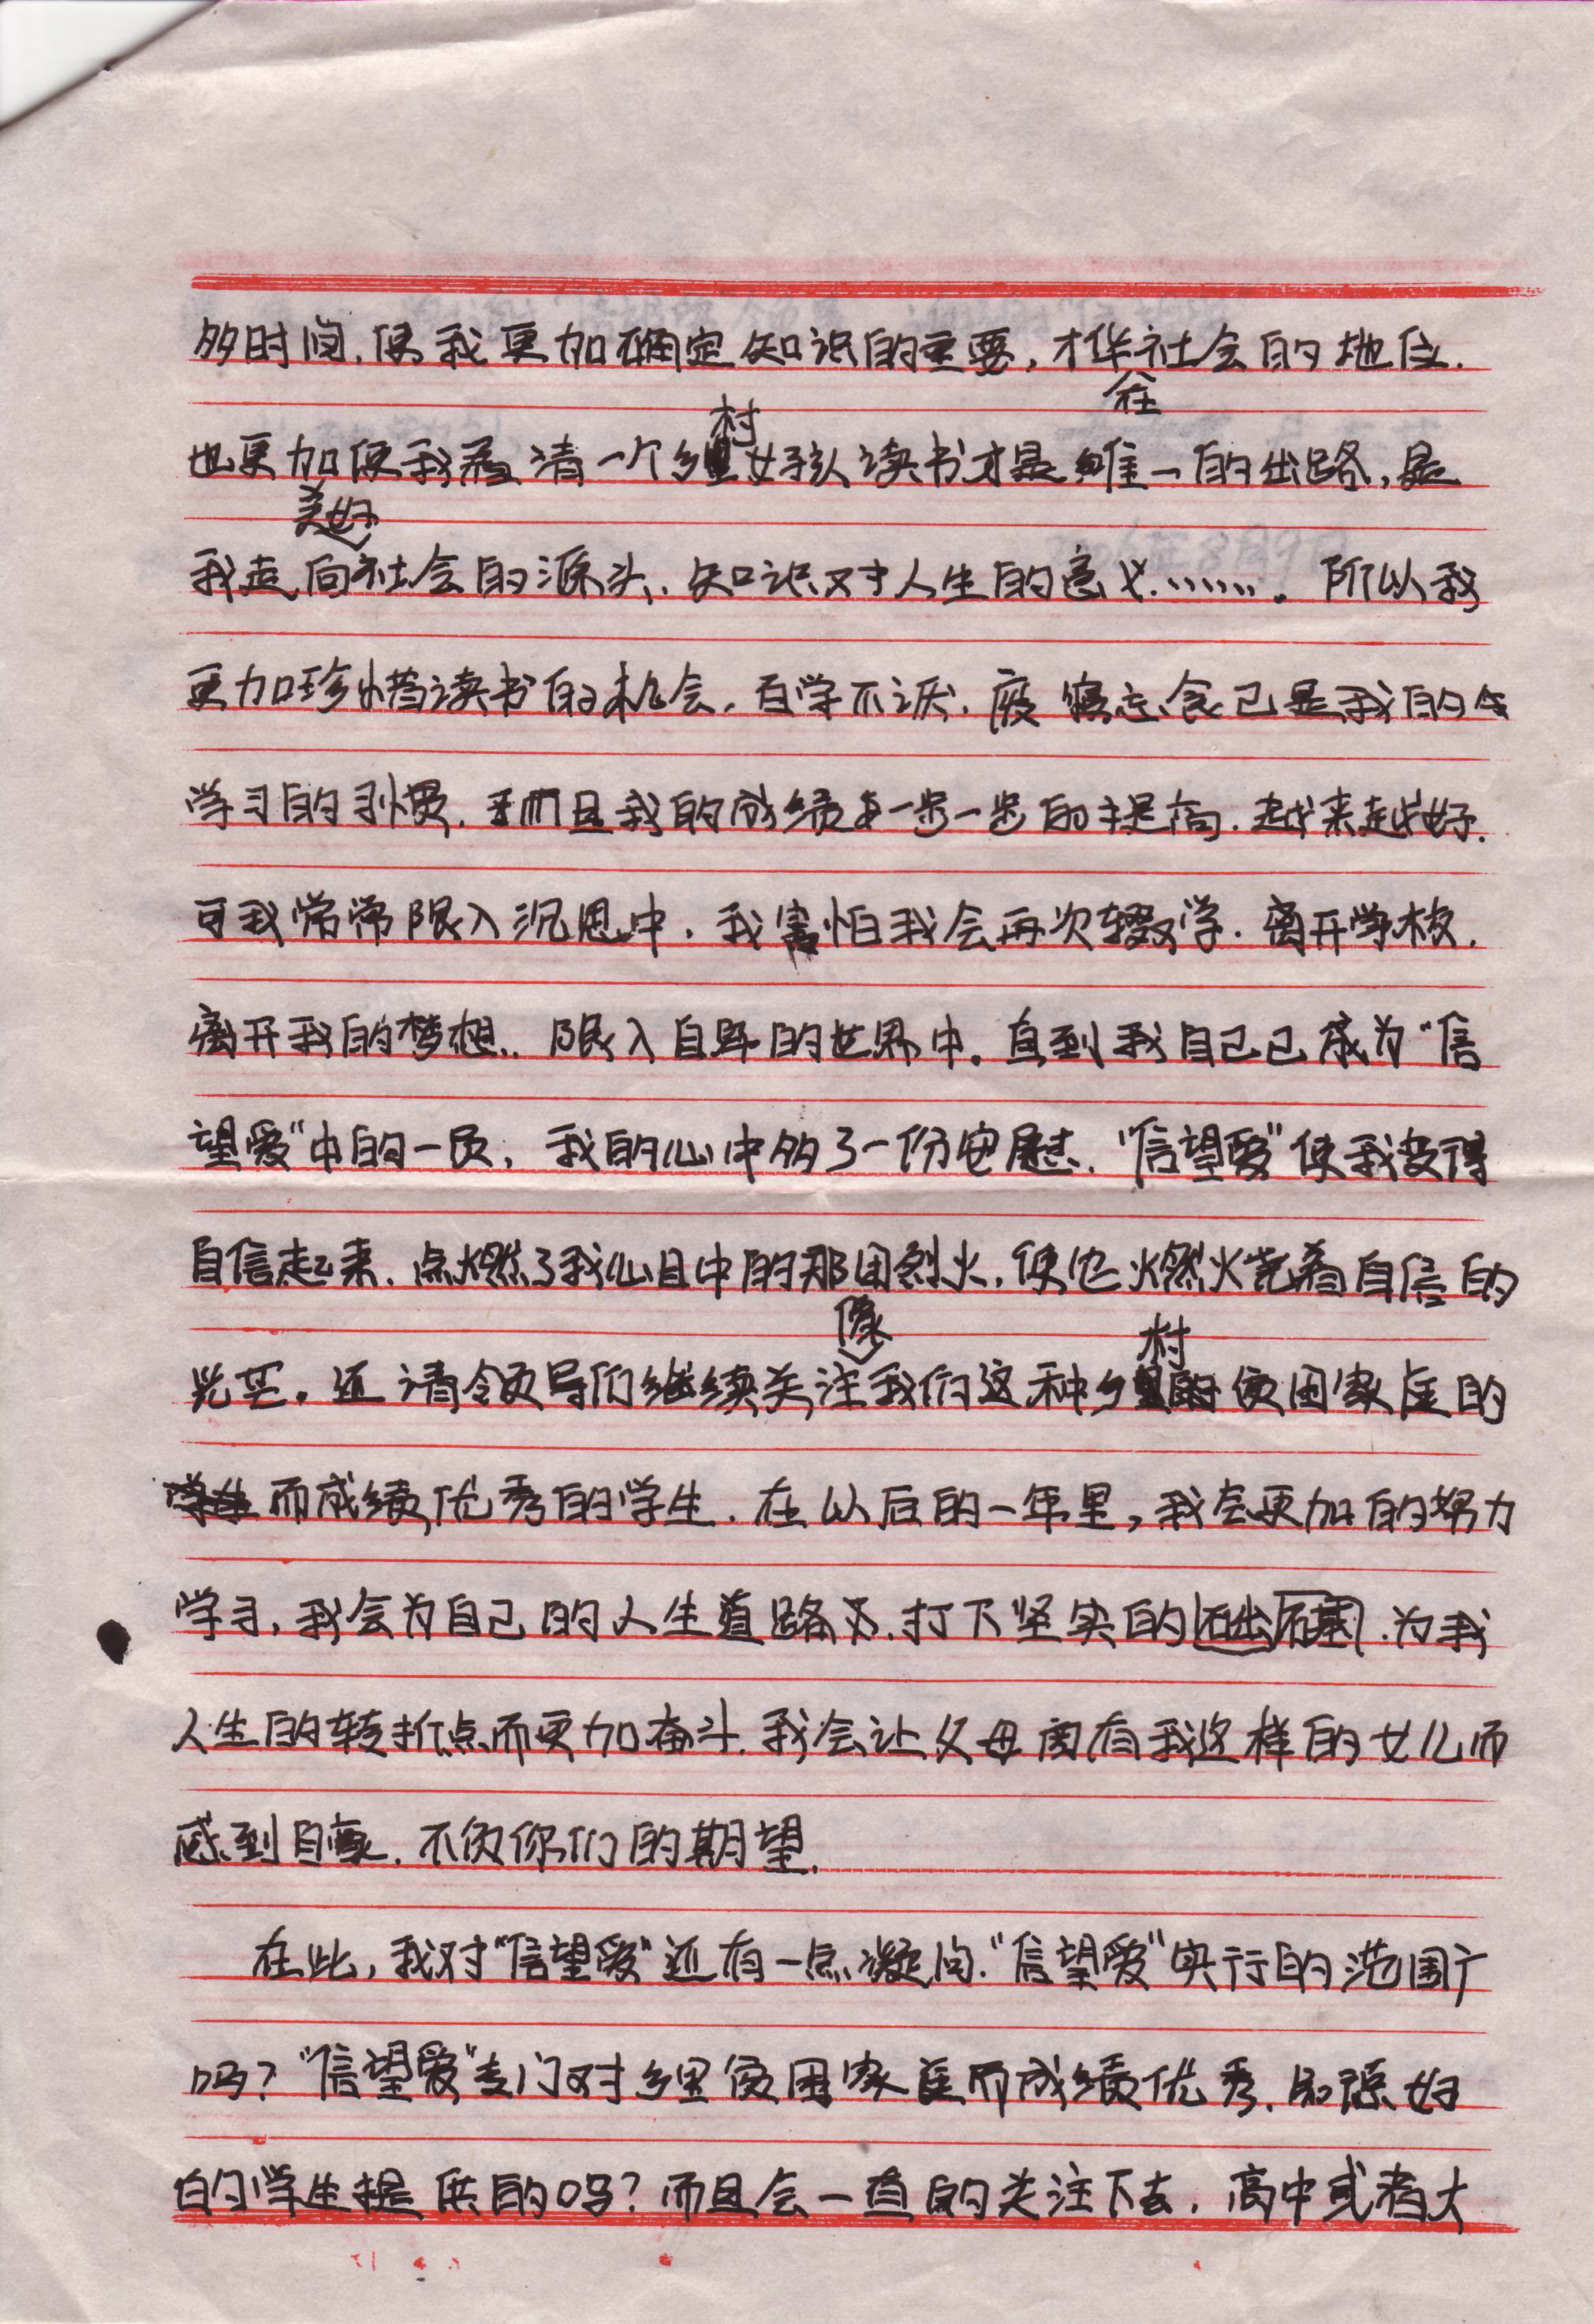 多时间,使我更加确定知识的重要,才华在社会的地位.
也更加使我看清一个乡村女孩读书才是唯一的出路,是
我走向美好社会的源头.知识对人生的意义…….所以我
更加珍惜读书的机会.百学不厌.废寝忘食已是我的
学习的习惯.而且我的成绩一步一步的提高.越来越好.
可我常常限入沉思中.我害怕我会再次辍学.离开学校.
离开我的梦想..限入自卑的世界中.直到我自己已成为“信
望爱”中的一员,我的心中多了一份安慰.“信望爱”使我变得
自信起来.点燃了我心目中的那团烈火.使他燃烧着自信的
光芒.还请领导们继续关注像我们这种乡村贫困家庭的
而成绩优秀的学生.在以后的一年里,我会更加的努力
学习,我会为自己的人生道路.打下坚实的础石.为我
人生的转折点而更加奋斗.我会让父母因有我这样的女儿而
感到自豪.不负你们的期望.
在此,我对“信望爱”还有一点凝问.“信望爱”实行的范围广
吗?“信望爱”专门对乡里贫困家庭而成绩优秀.品德好
的学生提供的吗?而且会一直的关注下去.高中或者大